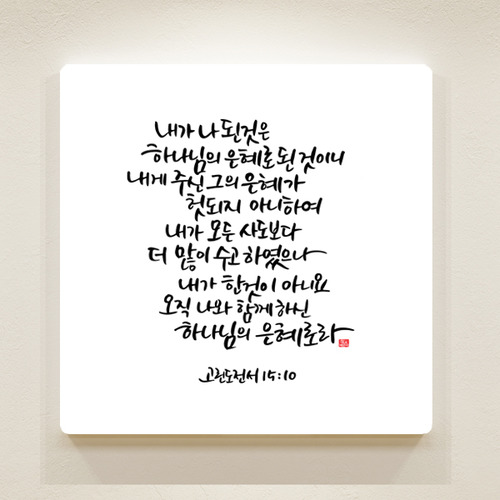 내가 나 된것은
하나님의 은혜로 된 것이니
내게 주신 그의 은혜가
헛되지 아니하여
내가 모든 사도보다
더 많이 수고하였으나
내가 한것이 아니요
오직 나와 함께 하신
하나님의 은혜로라
고린도전서 15:10